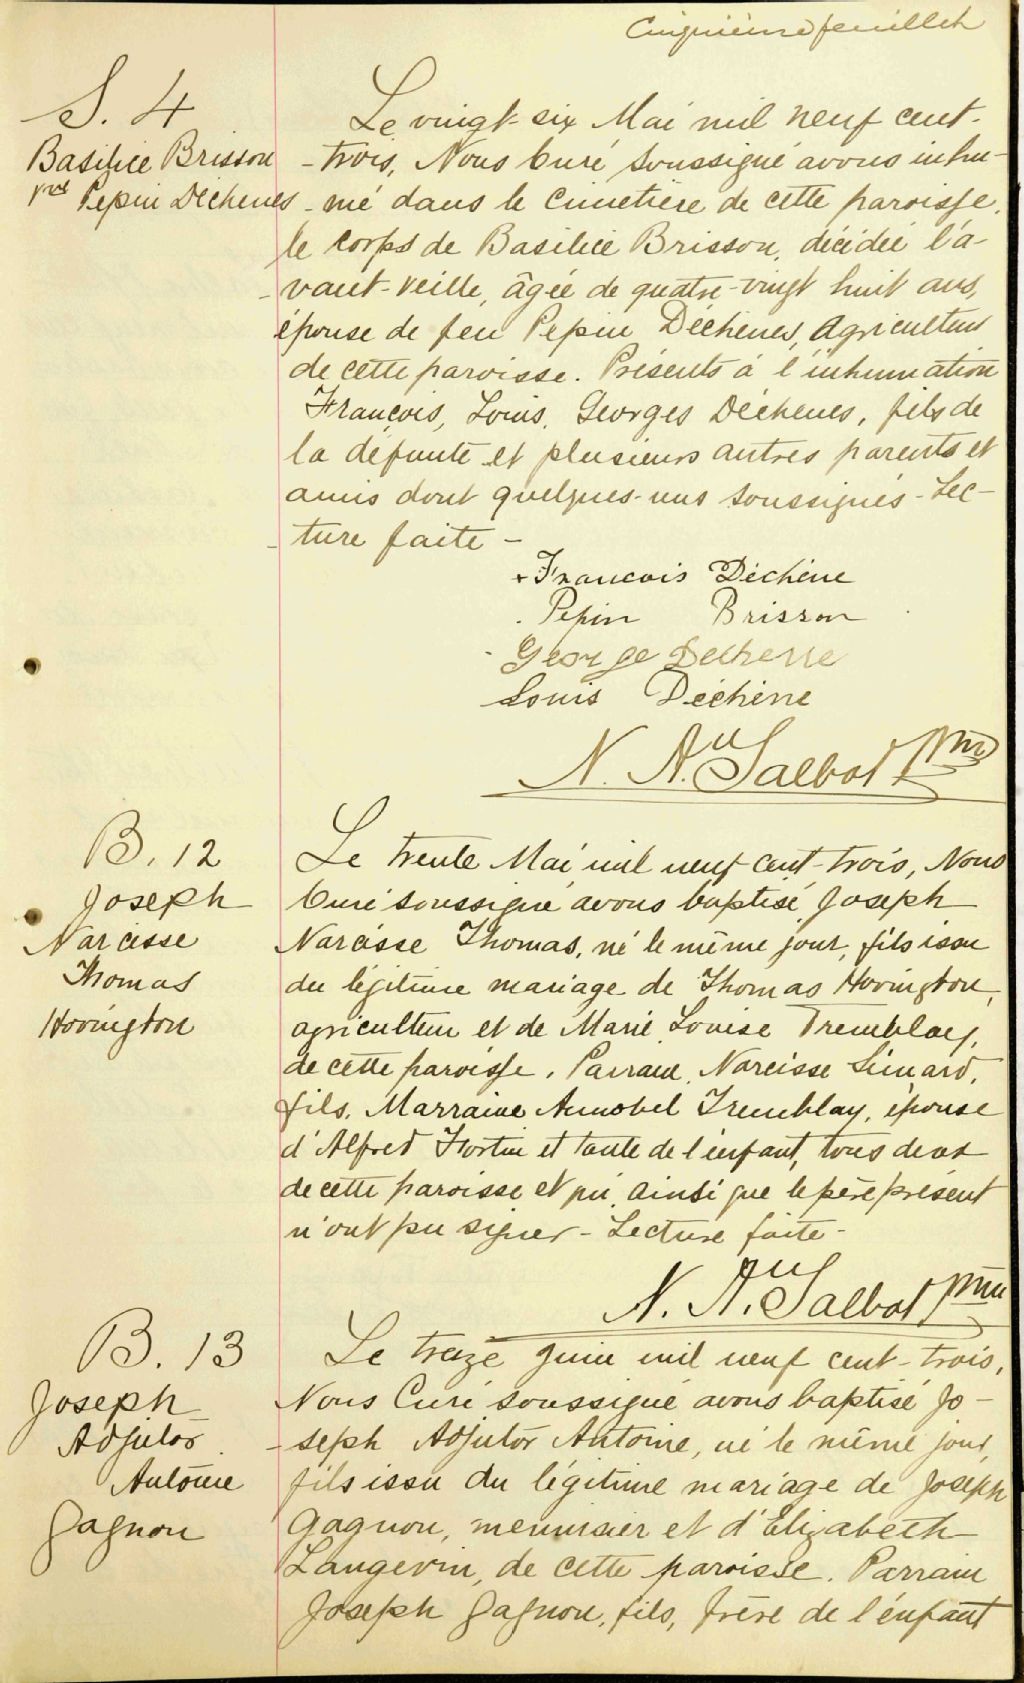 Cinquième feuillet
S. 4
Basilice Brisson
Pepin Déchenes
Le vingt-six Mai mil neuf cent-
-trois, Nous Curé soussigné avons inhu-
-mé dans le cimetière de cette paroisse,
le corps de Basilice Brisson, décédée l'a-
-vant-veille, âgée de quatre-vingt huit ans,
épouse de feu Pepin Déchenes, Agriculteur
de cette paroisse. Présents à l'inhumation
François, Louis, Georges Déchenes, fils de
la défunte et plusieurs autres parents et
amis dont quelques-uns soussignés - Lec-
-ture faite -
+ Francois Déchène
Pepin Brisson
George Dechesse
Louis Déchène
N. A. Talbot Ptre
B. 12
Joseph
Narcisse
Thomas
Hovington
Le trente Mai mil neuf cent-trois, Nous
Curé soussigné avons baptisé Joseph
Narcisse Thomas, né le même jour, fils issu
du légitime mariage de Thomas Hovington,
agriculteur et de Marie Louise Tremblay,
de cette paroisse. Parrain, Narcisse Simard,
fils, Marraine Annabel Tremblay, épouse
d'Alfred Fortin et tante de l'enfant, tous deux
de cette paroisse et qui, ainsi que le père présent
n'ont pu signer - Lecture faite -
N. A. Talbot Ptre
B. 13
Joseph
Adjutor
Antoine
Gagnon
Le treize Juin mil neuf cent-trois,
Nous Curé soussigné avons baptisé Jo-
-seph Adjutor Antoine, né le même jour,
fils issu du légitime mariage de Joseph
Gagnon, menuisier et d'Elizabeth
Langevin, de cette paroisse. Parrain
Joseph Gagnon, fils, frère de l'enfant